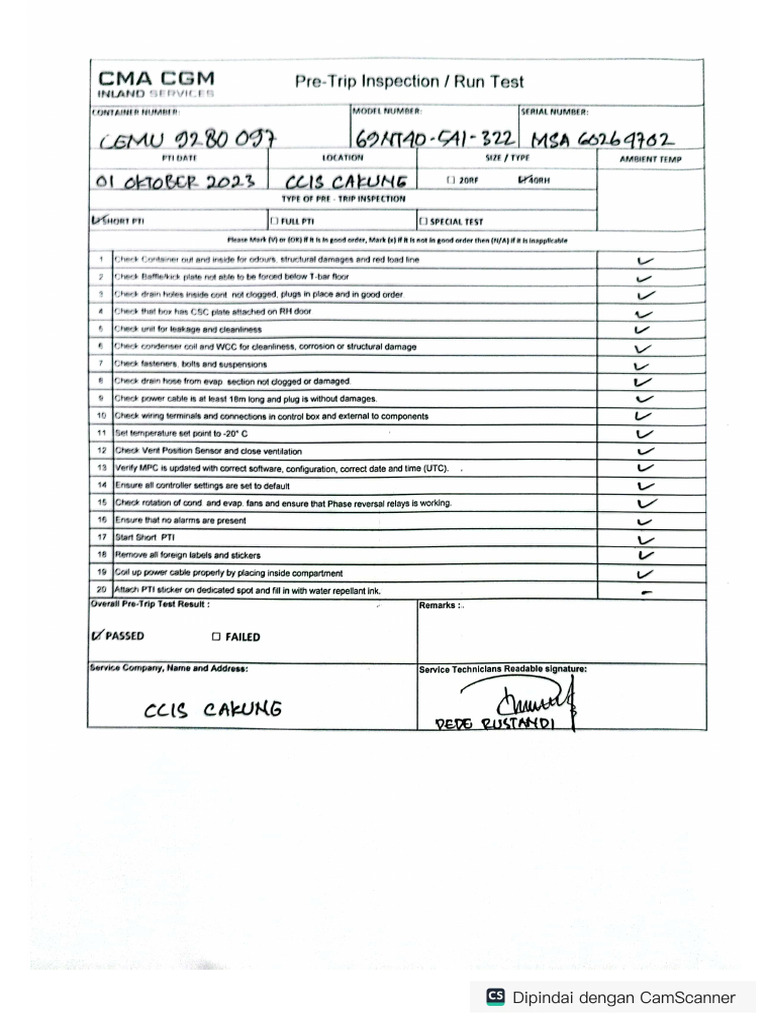 CMA CGM
INLAND SERVICES
Pre-Trip Inspection / Run Test
CONTAINER NUMBER: MODEL NUMBER: SERIAL NUMBER:
CEMU 9280 097 69NT40-541-322 MSA 60269702
PTI DATE LOCATION SIZE / TYPE AMBIENT TEMP
01 OKTOBER 2023 CCIS CAKUNG ☐ 20RF ☑ 40RH
TYPE OF PRE - TRIP INSPECTION
☑ SHORT PTI ☐ FULL PTI ☐ SPECIAL TEST
Please Mark (V) or (OK) if it is in good order, Mark (x) if it is not in good order then (N/A) if it is inapplicable
1 Check Container out and inside for odours, structural damages and red load line ✓
2 Check Baffle/kick plate not able to be forced below T-bar floor ✓
3 Check drain holes inside cont not clogged, plugs in place and in good order ✓
4 Check that box has CSC plate attached on RH door ✓
5 Check unit for leakage and cleanliness ✓
6 Check condenser coil and WCC for cleanliness, corrosion or structural damage ✓
7 Check fasteners, bolts and suspensions ✓
8 Check drain hose from evap section not clogged or damaged. ✓
9 Check power cable is at least 18m long and plug is without damages. ✓
10 Check wiring terminals and connections in control box and external to components ✓
11 Set temperature set point to -20° C ✓
12 Check Vent Position Sensor and close ventilation ✓
13 Verify MPC is updated with correct software, configuration, correct date and time (UTC). ✓
14 Ensure all controller settings are set to default ✓
15 Check rotation of cond and evap. fans and ensure that Phase reversal relays is working. ✓
16 Ensure that no alarms are present ✓
17 Start Short PTI ✓
18 Remove all foreign labels and stickers ✓
19 Coil up power cable properly by placing inside compartment ✓
20 Attach PTI sticker on dedicated spot and fill in with water repellant ink. -
Overall Pre-Trip Test Result : Remarks :
☑ PASSED ☐ FAILED
Service Company, Name and Address: Service Technicians Readable signature:
CCIS CAKUNG
DEDE RUSTANDI
CS Dipindai dengan CamScanner